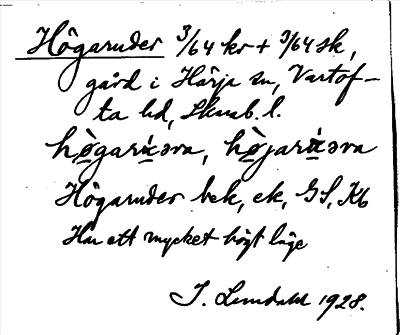 Högaruder 3/64 kr + 3/64 sk,
gård i Härja sn, Vartof-
ta hd, Skarab. l.
hògarúəra, hòjarúəra
Högaruder bek, ek, GS, Kb
Har ett mycket högt läge
J. Lundahl 1928.